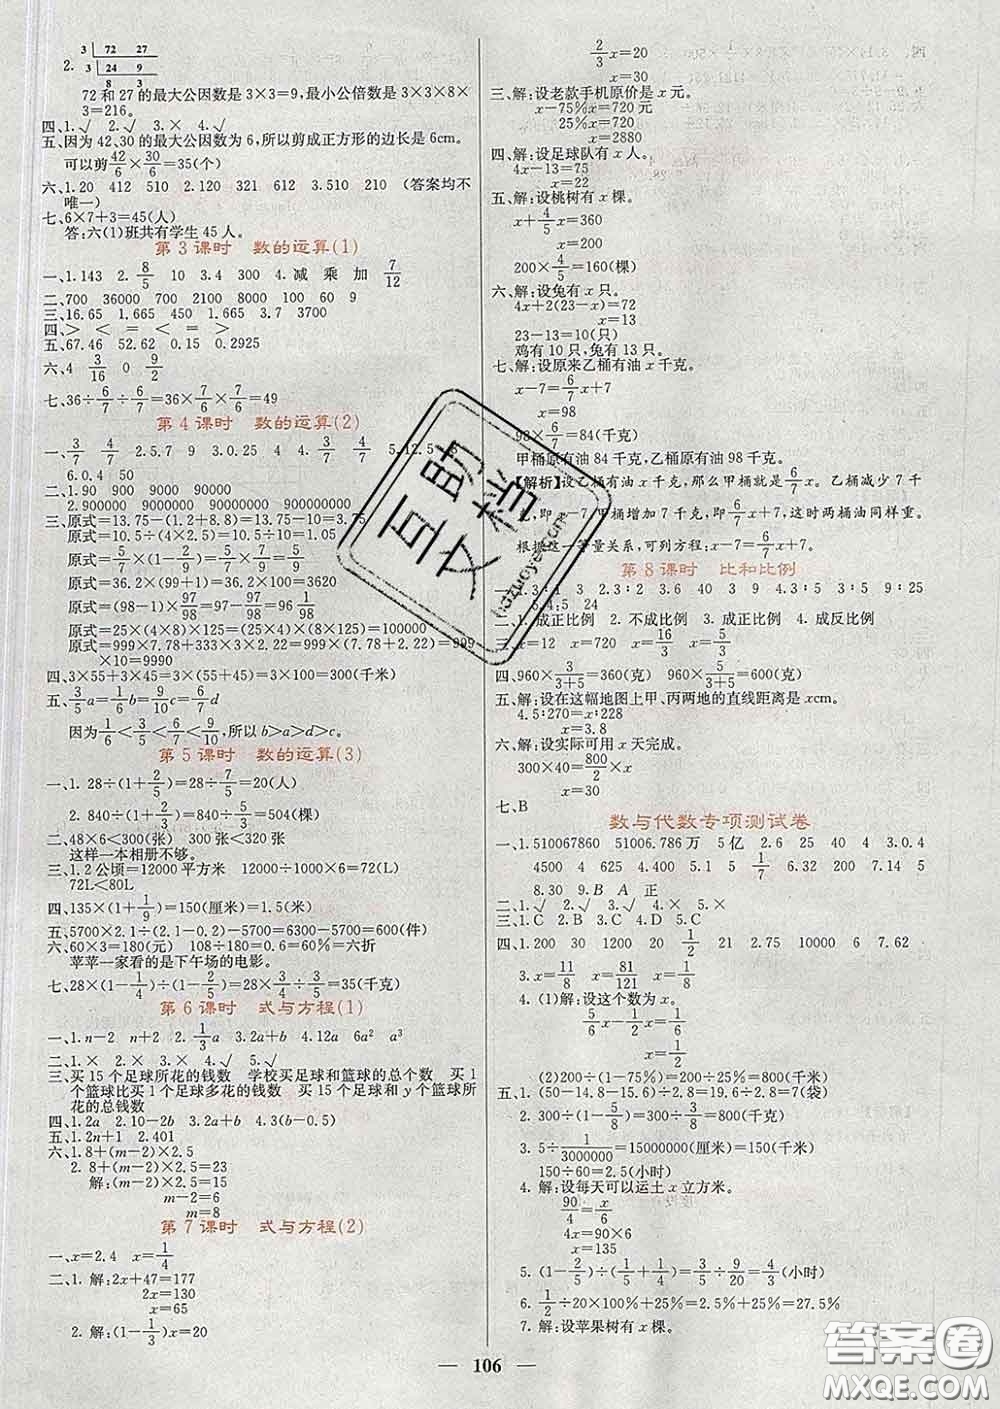 3 72 27
2. 3 24 9
8 3
72 和 27 的最大公因数是 3×3=9，最小公倍数是 3×3×8×
3=216。
四、1.√ 2.√ 3.× 4.√
五、因为 42、30 的最大公因数为 6，所以剪成正方形的边长是 6cm。
可以剪42/6×30/6=35(个)
六、1.20 412 510 2.120 321 612 3.510 210 (答案均不
唯一)
七、6×7+3=45(人)
答：六(1)班共有学生 45 人。
第 3 课时 数的运算(1)
一、1.143 2.8/5 10 3.4 300 4.减 乘 加 7/12
二、700 36000 700 2100 8000 100 60 9
三、16.65 1.665 450 1.665 3.7 3700
四、> < = < = >
五、67.46 52.62 0.15 0.2925
六、4 3/16 0 9/2
七、36÷6/7÷6/7=36×7/6×7/6=49
第 4 课时 数的运算(2)
一、1.3/7 4/7 2.5.7 9 3.0.25 30 4.3/4 3/4 5.12.5
6.0.4 50
二、1.90 900 9000 90000
2.900000 900000 900000 900000
三、原式=13.75-(1.2+8.8)=13.75-10=3.75
原式=10.5÷(4×2.5)=10.5÷10=1.05
原式=5/9×(1-2/5)=5/9×3/5=1/3
原式=(98-1)×97/98=97-97/98=96 1/98
原式=25×(4×8)×125=(25×4)×(8×125)=100000
原式=999×7.78+333×3×2.22=999×(7.78+2.22)=999
×10=9990
四、3×55+3×45=(55+45)×3=3×100=300(千米)
五、3/5a=1/6b=9/10c=6/7d
因为1/6<3/5<6/7<9/10，所以 b>a>d>c。
第 5 课时 数的运算(3)
一、1. 28÷(1+2/5)=28÷7/5=20(人)
2. 840÷(1+2/3)=840÷5/3=504(棵)
二、48×6<300(张) 300 张<320 张
这样一本相册不够。
三、1.2 公顷=12000 平方米 12000÷1000×6=72(L)
72L<80L
四、135×(1+1/9)=150(厘米)=1.5(米)
五、5700×2.1÷(2.1-0.2)-5700=6300-5700=600(件)
六、60×3=180(元) 108÷180=0.6=60%=六折
苹苹一家看的是下午场的电影。
七、28×(1-1/4)÷(1-2/5)=28×3/4÷3/5=35(千克)
第 6 课时 式与方程(1)
一、1.n-2 n+2 2.1/3a 3.2a+b 4.12a 6a² a³
二、1.× 2.× 3.× 4.√ 5.√
三、买 15 个足球所花的钱数 学校买足球和篮球的总个数 买 1
个篮球比买 1 个足球多花的钱数 买 15 个足球和 y 个篮球所
花的总钱数
四、1.2a 2.10-2b 4.3(b-0.5)
五、1.2n+1 2.401
六、1.8+(m-2)×2.5
2. 8+(m-2)×2.5=23
解：(m-2)×2.5=15
m-2=6
m=8
第 7 课时 式与方程(2)
一、x=2.4 x=1/4
二、1. 解：2x+47=177
2x=130
x=65
2. 解：(1-1/3)x=20
2/3x=20
x=30
三、解：设老款手机原价是 x 元。
x-75%x=720 元
25%x=720
x=2880
四、解：设足球队有 x 人。
4x-13=75
x=22
五、解：设桃树有 x 棵。
x+4/5x=360
x=200
200×4/5=160(棵)
六、解：设兔有 x 只。
4x+2(23-x)=72
x=13
23-13=10(只)
鸡有 10 只，兔有 13 只。
七、解：设原来乙桶有油 x 千克。
x-7=6/7x+7
x=98
98×6/7=84(千克)
甲桶原有油 84 千克，乙桶原有油 98 千克。
【解析】设乙桶有油 x 千克，那么甲桶就是6/7x。乙桶减少 7 千
克，即 x-7，甲桶增加 7 千克，即6/7x+7，这时两桶油同样重。
根据这一等量关系，可列方程：x-7=6/7x+7。
第 8 课时 比和比例
一、1.3∶1 3 2.3∶2 3.6 4.3∶2 3 9∶4 5.9∶25
二、1. 成正比例 2. 不成比例 3. 成正比例 4. 成反比例
三、x=12 x=720 x=16/3 x=5/3
四、960×3/(3+5)=360(克) 960×5/(3+5)=600(克)
五、解：设在这幅地图上甲、丙两地的直线距离是 xcm。
4.5∶270=x∶228
x=3.8
六、解：设实际可用 x 天完成。
300×40=800/2×x
x=30
七、B
数与代数专项测试卷
一、1.510067860 51006.786万 5亿 2.6 25 40 4 3.0.4
4500 4 625 4.400 5.1 5 1/7 6.32 200 7.14 5
8.30 9.B A 正
二、1.√ 2.√ 3.√ 4.× 5.×
三、1.C 2.B 3.C 4.C
四、1.200 30 1200 20 1/2 21 2.75 10000 6 7.62
3.x=11/8 x=81/121 x=1/8
4. (1)解：设这个数为 x。
5/6x-x/3=1/4
x=1/2
(2)200÷(1-3/4)=200÷1/4=800(千米)
五、1. (50-14.8-15.6)÷2.8=19.6÷2.8=7(袋)
2. 300÷(1-5/8)=300÷3/8=800(千克)
3. 5÷1/3000000=15000000(厘米)=150(千米)
150÷60=2.5(小时)
4. 解：设每天可以运土 x 立方米。
90/4=x/6
4x=90×6
x=135
5. (1-2/5)÷(1/5+1/4)=3/5÷9/20=4/3(小时)
6. 1/2÷20×100%+25%=2.5%+25%=27.5%
7. 解：设苹果树有 x 棵。
106
互助文档
答案圈
MXQE.COM